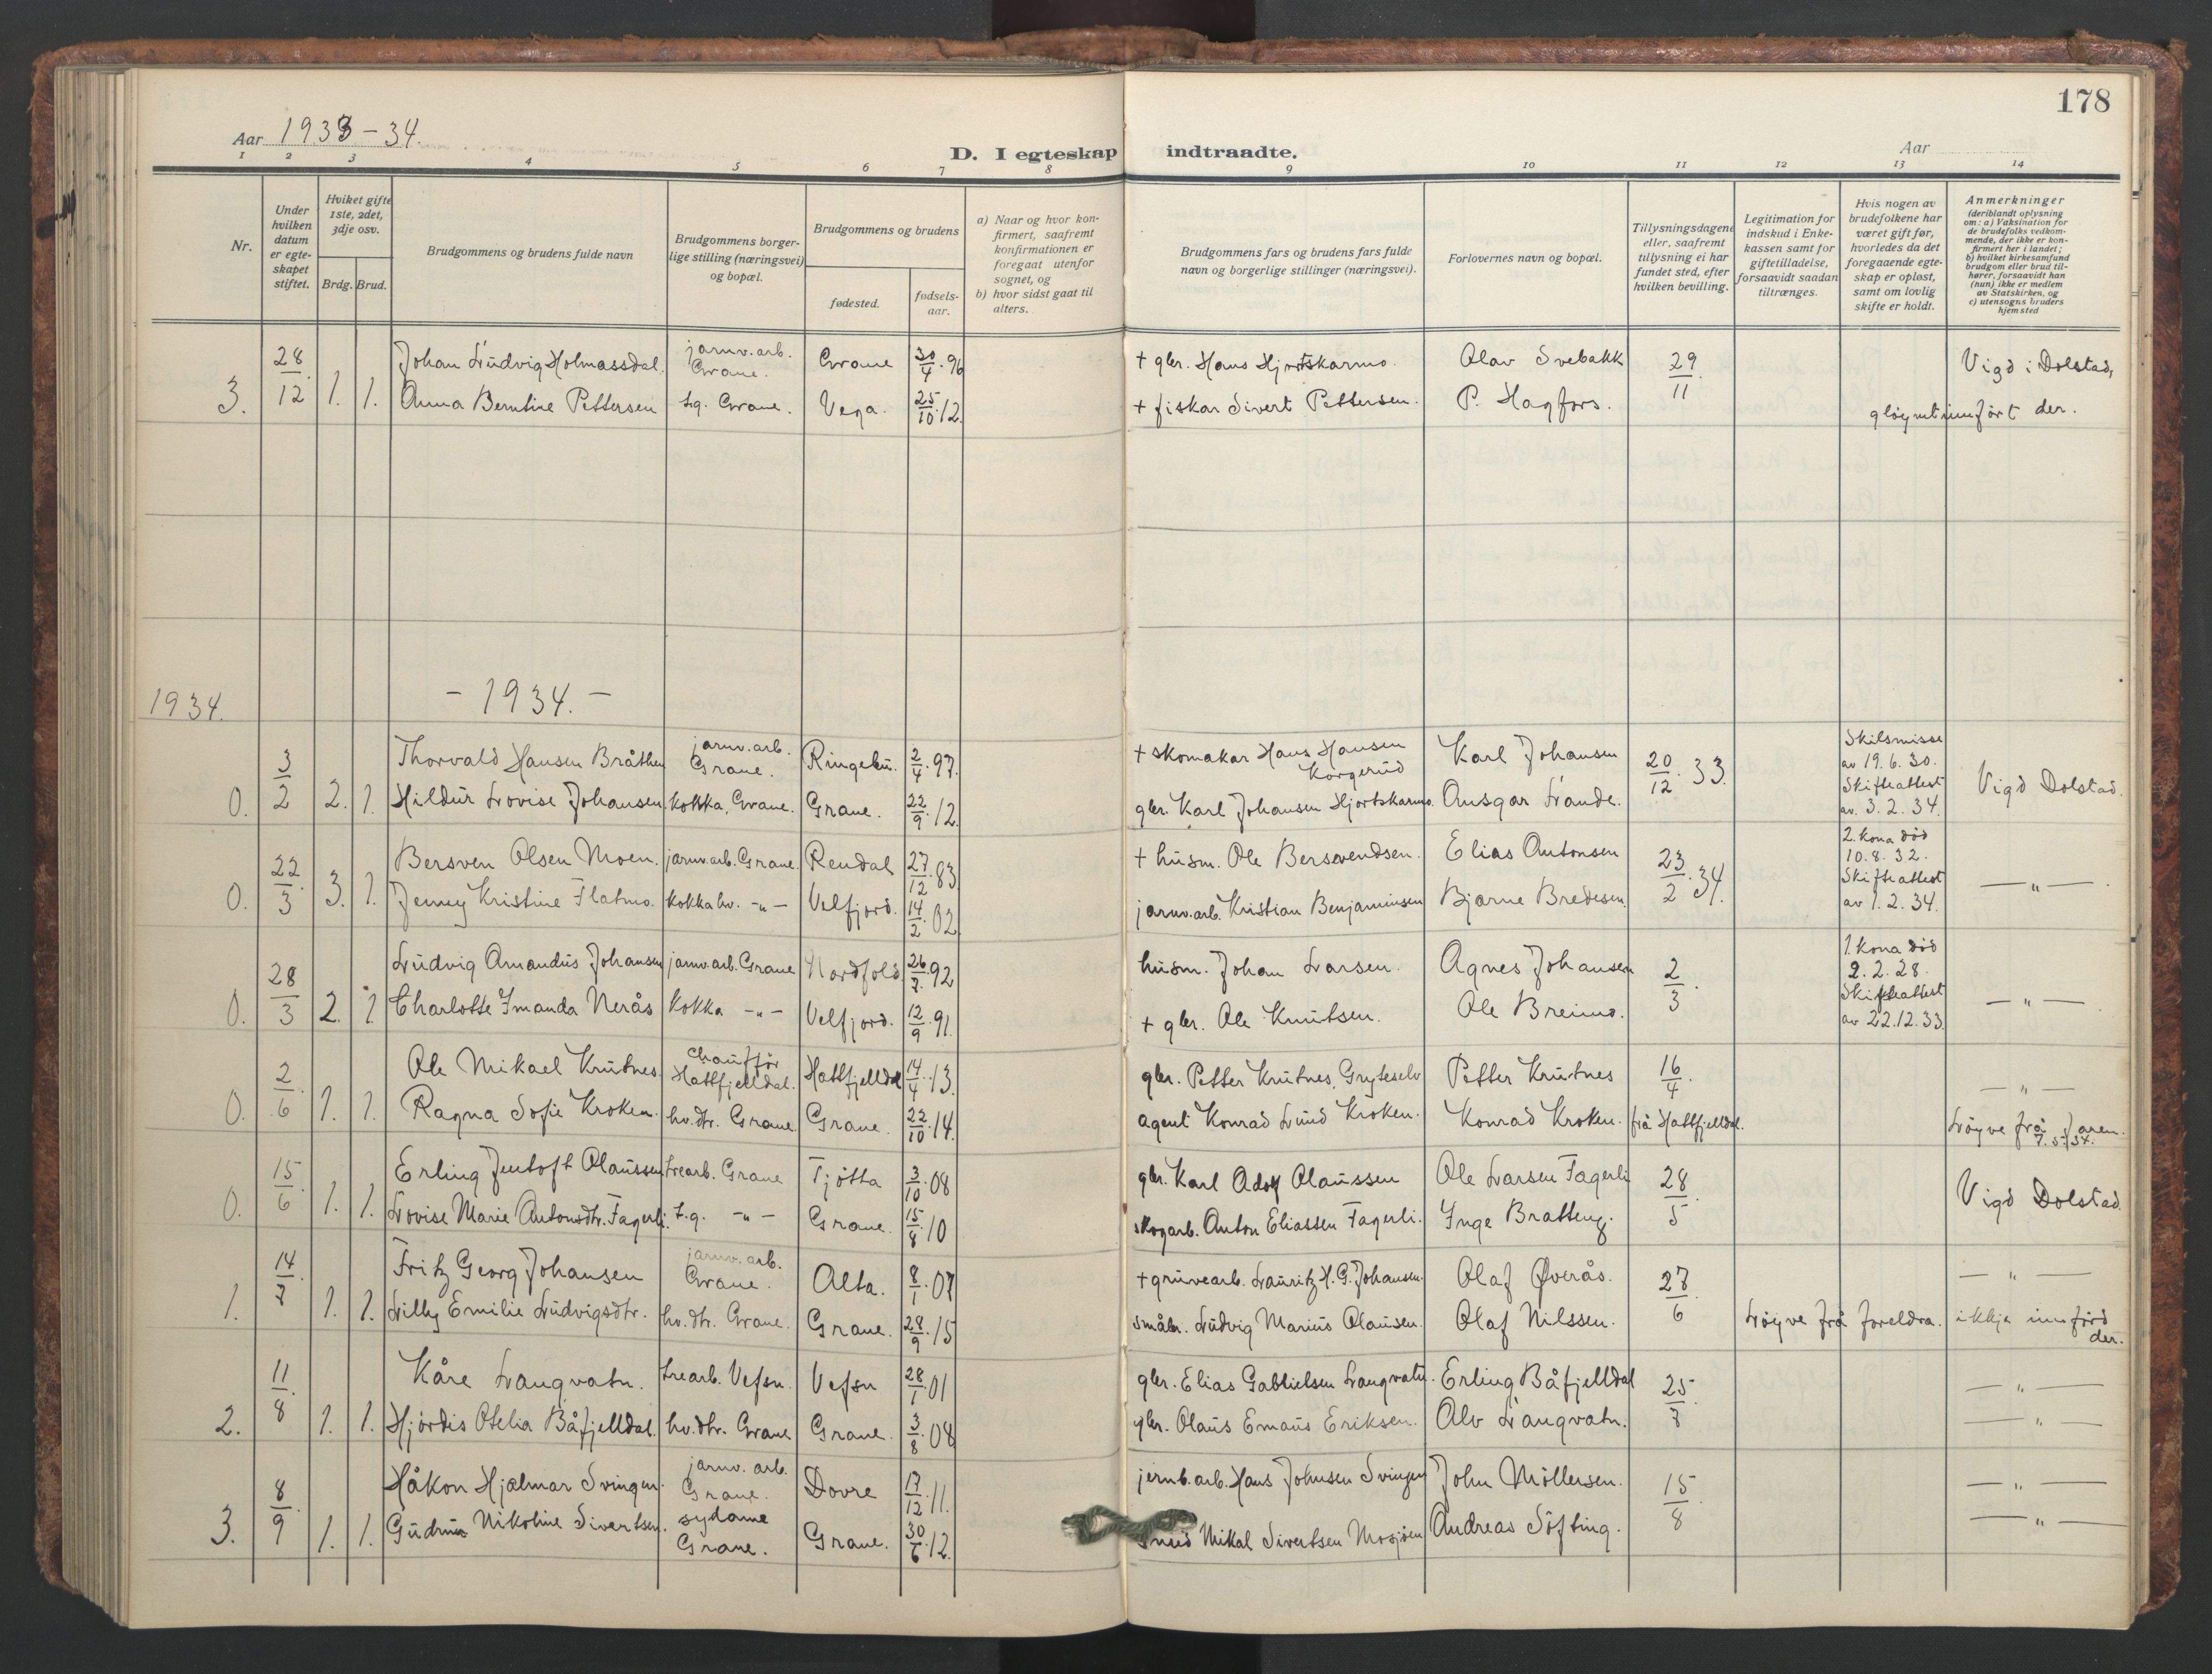 178
Aar 1933-34.
D. I egteskap indtraadte.
Aar
1 2 3 4 5 6 7 8 9 10 11 12 13 14
Nr.
Under hvilken datum er egteskapet stiftet.
Hvilket gifte 1ste, 2det, 3dje osv.
Brdg. Brud.
Brudgommens og brudens fulde navn
Brudgommens borgerlige stilling (næringsvei) og bopæl.
Brudgommens og brudens
fødested.
fødselsaar.
a) Naar og hvor konfirmert, saafremt konfirmationen er foregaat utenfor sognet, og
b) hvor sidst gaat til alters.
Brudgommens fars og brudens fars fulde navn og borgerlige stillinger (næringsvei).
Forlovernes navn og bopæl.
Tillysningsdagene eller, saafremt tillysning ei har fundet sted, efter hvilken bevilling.
Legitimation for indskud i Enkekassen samt for giftetilladelse, forsaavidt saadan tiltrænges.
Hvis nogen av brudefolkene har været gift før, hvorledes da det foregaaende egteskap er opløst, samt om lovlig skifte er holdt.
Anmerkninger (deriblandt oplysning om: a) Vaksination for de brudefolks vedkommende, der ikke er konfirmert her i landet; b) hvilket kirkesamfund brudgom eller brud tilhører, forsaavidt han (hun) ikke er medlem av Statskirken, og c) utensogns bruders hjemsted
3. 28/12 1. 1. Johan Ludvig Holmassdal. jarnv.arb. Grane. Grane 30/4.96 + gbr. Hans Hjortskarmo. Olav Svebakk 29/11 Vigd i Dolstad,
Anna Berntine Pettersen tq. Grane. Vega. 25/10.12. + fiskar Sivert Pettersen. P. Hagfors. gløymt innført der.
1934. - 1934. -
0. 3/2 2. 1. Thorvald Hansen Bråthen jarnv.arb. Grane. Ringebu. 2/4.97. + skomakar Hans Hansen Korgerud Karl Johansen 20/12.33. Skilsmisse av 19.6.30. Skifteattest av. 3.2.34. Vigd Dolstad.
Hildur Lovise Johansen kokka, Grane. Grane. 22/9.12. gbr. Karl Johansen Hjortskarmo. Ansgar Lande.
0. 22/3 3. 1. Bersven Olsen Moen. jarnv.arb. Grane Rendal 27/12.83 + husm. Ole Bersvendsen. Elias Antonsen 23/2.34. 2. kona død 10.8.32. Skifteattest av 1.2.34. — " —
Jenny Kristine Flatmo. kokka hv. -"- Velfjord. 14/2.02 jarnv.arb. Kristian Benjaminsen Bjarne Bredesen.
0. 28/3 2. 1. Ludvig Amandus Johansen jarnv.arb. Grane Nordfold 26/7.92 husm. Johan Larsen. Agnes Johansen 2/3. 1. kona død 2.2.28. Skifteattest av 22.12.33. — " —
Charlotte Imanda Nerås kokka -"- Velfjord. 12/9.91. + gbr. Ole Knutsen. Ole Breimo.
0. 2/6 1. 1. Ole Mikael Krutnes chauffør Hattfjelldal. Hattfjelldal 14/4.13. gbr. Petter Krutnes, Gryteselv Petter Krutnes 16/4. — " —
Ragna Sofie Kroken. hv.dtr. Grane. Grane. 22/10.14. agent Konrad Lund Kroken. Konrad Kroken. frå Hattfjelldal. Løyve frå faren. 7.5.34.
0. 15/6 1. 1. Erling Jentoft Olaussen trearb. Grane Tjøtta 3/10.08 gbr. Karl Adolf Olaussen Ole Larsen Fagerli 28/5 Vigd Dolstad.
Lovise Marie Antonsdtr. Fagerli. t.q. -"- Grane. 15/8.10 skogarb. Anton Eliassen Fagerli. Inge Bratteng.
1. 14/7 1. 1. Fritz Georg Johansen jarnv.arb. Grane. Alta. 8/1.07 + gruvearb. Lauritz H. G. Johansen. Olaf Øverås. 27/6. — " —
Lilly Emilie Ludvigsdtr. hv.dtr. Grane. Grane. 28/9.15 småbr. Ludvig Marius Olausen. Olaf Nilssen. Løyve frå foreldra. ikkje innførd der.
2. 11/8 1. 1. Kåre Langvatn. trearb. Vefsn. Vefsn 28/1.01 gbr. Elias Gabrielsen Langvatn. Erling Båfjelldal 25/7. — " —
Hjørdis Otelia Båfjelldal. hv.dtr. Grane Grane. 3/8.08 gbr. Olaus Emaus Eriksen. Alv Langvatn. — " —
3. 8/9 1. 1. Håkon Hjalmar Svingen. jarnv. arb. Grane. Dovre 17/12.11. jernb.arb. Hans Johnsen Svingen John Møllersen. 15/8 — " —
Gudrun Nikoline Sivertsen. sydame Grane. Grane. 30/6.12. Mikal Sivertsen Mosjøen Andreas Søfting. — " —